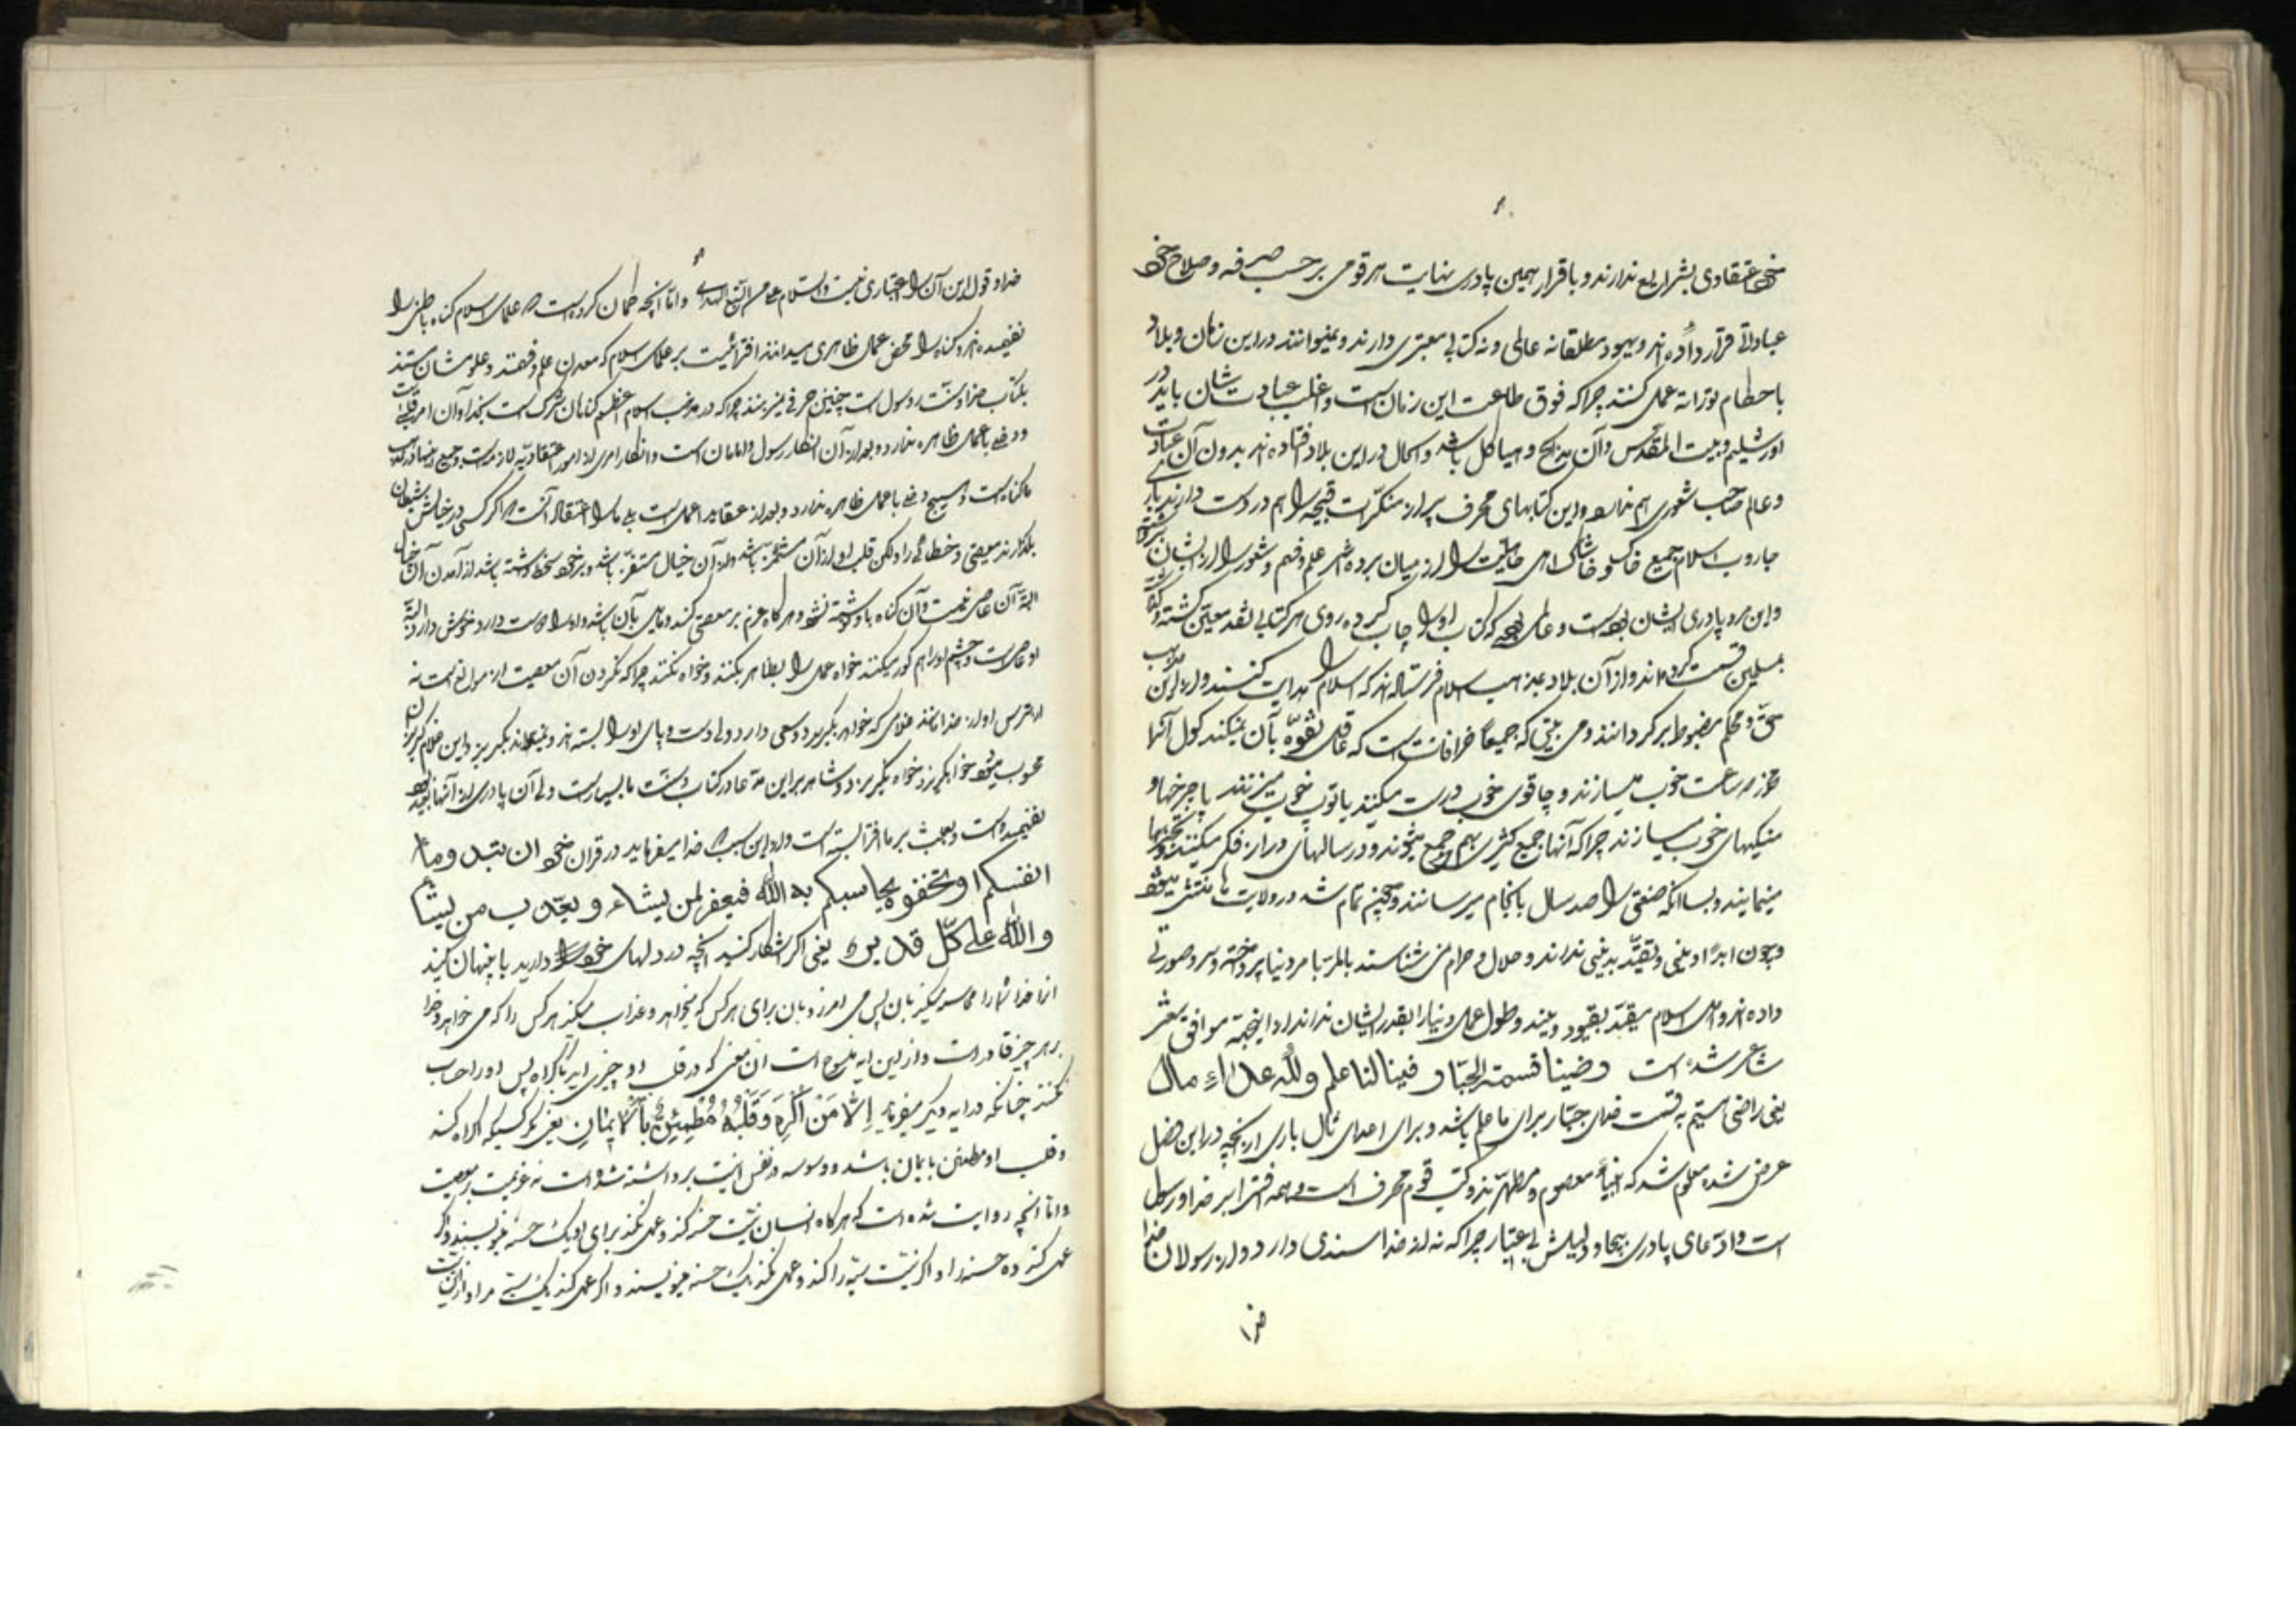 خود اعتقادی بشرایع ندارند و باقرار همین پادری نهایت هر قومی بر حسب صرفه و صلاح خود
عباداتی قرار داده‌اند و یهود مطلقا نه عالمی و نه کتابی معتبری دارند و نمیتوانند در این زمان و بلاد
باحکام توراته عمل کنند چرا که فوق طاعت این زمان است و اغلب عبادت شان باید در
اورشلیم و بیت المقدس و آن مذابح و هیاکل باشد و الحال در این بلاد فتاده‌اند بدون آن عبادت
و عالم صاحب شعوری هم ندارند و این کتابهای محرف پر از منکرات قبیحه را هم در دست دارند باری
جاروب اسلام جمیع خاک و خاشاک اهل جاهلیت را از میان برده علم و فهم و شعور را از ایشان
و این مرد پادری ایشان بوده است و عالمی بوده که کتاب او را چاپ کرده روی هر کتابی بقدر معین گشته و
بمسلمین قسمت کرده‌اند و از آن بلاد بمذاهب اسلام فرستاده‌اند که اسلام را هدایت کنند و از این مذاهب
حق و محکم مضبوط برگردانند و می بینی که جمیعا خرافاتست که عاقل تفوه بآن نمیکند گول آنها
ساعت خوب میسازند و چاقوی خوب درست میکنند یا توپ خوب میریزند یا چرخها و
خوب میسازند چرا که آنها جمع کثیری بهم جمع میشوند و در سالهای دراز فکر میکنند و تجربها
مینمایند و بسا آنکه صنعتی را صد سال بانجام میرسانند و همچنین تمام شد در ولایت ها منتشر میشود
و چون ابدا دینی و تقید بدینی ندارند و حلال و حرام نمی شناسند بالمره بامر دنیا پرداخته و سر و صورتی
داده‌اند و اهل اسلام مقید بقیود دینند و طول عمل دنیا را بقدر ایشان ندارند از اینجهة موافق شعر
شاعر شده است رضینا قسمة الجبار فینا لنا علم و للاعداء مال
یعنی راضی هستیم به قسمت خدای جبار برای ما علم باشد و برای اعدای ما مال باری از آنچه در این فصل
عرض شده معلوم شد که انبیاء معصوم و مطهرند و کتب قوم محرف است و همه افترا بر خدا و رسول
است و ادعای پادری بیجا و دلیلش بی اعتبار چرا که نه از خدا سندی دارد و از رسولان خدا
خدا و قول این آن را اعتباری نیست والسلام علی من اتبع الهدی و اما آنچه گمان کرده است که علمای اسلام گناه باطنی را
نفهمیده‌اند و گناه را محض عمل ظاهری میدانند افترائیست بر علمای اسلام که معدن علم و فقهند و علومشان مستند
بکتاب خدا و سنت رسول است چنین حرفی نمیزنند چرا که در مذهب اسلام اعظم گناهان شرک است بخدا و آن امر قلبی است
و دخلی باعمال ظاهره ندارد و بعد از آن انکار رسول و امامان است و انکار امری از امور اعتقادیه لازمه است و جمیع اینها در مذهب
ما گناه است و هیچ دخلی باعمال ظاهره ندارد و بعد از عقاید اعمال است بلی ما را اعتقاد آنست که اگر کسی در خیالش شیطان
بگذارند معصیتی و خطائی را و لکن قلب او از آن مشمئز باشد و از آن خیال متنفر باشد و بر خود سخط داشته باشد از آمدن آن خیال
البته آن عاصی نیست و آن گناه باو نوشته نشود و هرگاه عزم بر معصیتی کند و مایل بآن باشد و او را دوست دارد و خوش دارد البته
او عاصی است و چشم او را هم کور میکنند خواه عمل را بظاهر بکنند و خواه نکنند چرا که نکردن آن معصیت از موانع است نه
از ترس او از خدا مانند غلامی که خواهد بگریزد و سعی دارد ولی دست و پای او را بسته‌اند و نمیتواند بگریزد و این غلام گریزان
محسوب میشود خواه بگریزد خواه نگریزد و شاهد بر این مدعا در کتاب و سنت ما بسیار است ولی آن پادری از آنها بیخبر بوده
نفهمیده است و بعبث بر ما افترا بسته است و از این سبب که خدا میفرماید در قرآن خود ان تبدوا ما فی
انفسکم او تخفوه یحاسبکم به الله فیغفر لمن یشاء و یعذب من یشاء
والله علی کل شیء قدیر یعنی اگر آشکار کنید آنچه در دلهای خود را دارید یا پنهان کنید
آنرا خدا شما را محاسبه میکند بآن پس می آمرزد بآن برای هر کس که میخواهد و عذاب میکند هر کس را که می خواهد و خدا
بر هر چیز قادر است و از این آیه منسوخ است آن معنی که در قلب او چیزی آید باکراه پس او را حساب
نکنند چنانکه در آیه دیگر میفرماید اِلّا مَنْ اُکْرِهَ وَ قَلْبُهُ مُطْمَئِنٌّ بِالْاِیمانِ یعنی مگر کسیکه اکراه کنند
و قلب او مطمئن بایمان باشد و وسوسه در نفس از امت برداشته شده است نه عزیمت بر معصیت
و اما آنچه روایت شده است که هرگاه انسان نیت حسنه کند و عمل نکند برای او یک حسنه مینویسند و اگر
عمل کند ده حسنه را و اگر نیت سیئه را کند و عمل نکند یک حسنه مینویسند و اگر عمل کند یک سیئه مراد از این نیت
خدا